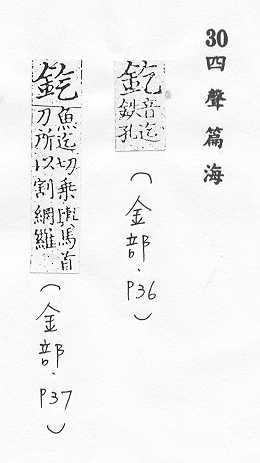 30四聲篇海
釳音迄
鉄孔
(金部.P36)
釳魚迄切乘輿馬首
刀所以割網羅
(金部.P37)